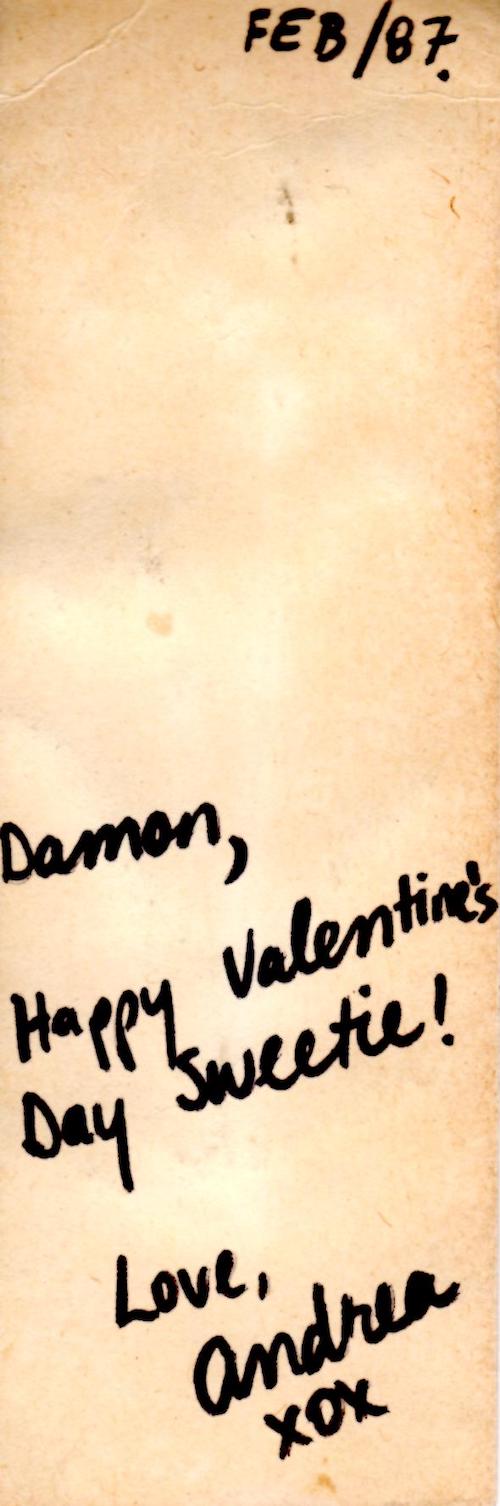 FEB/87.
Damon,
Happy Valentine's
Day Sweetie!
Love,
Andrea
xox